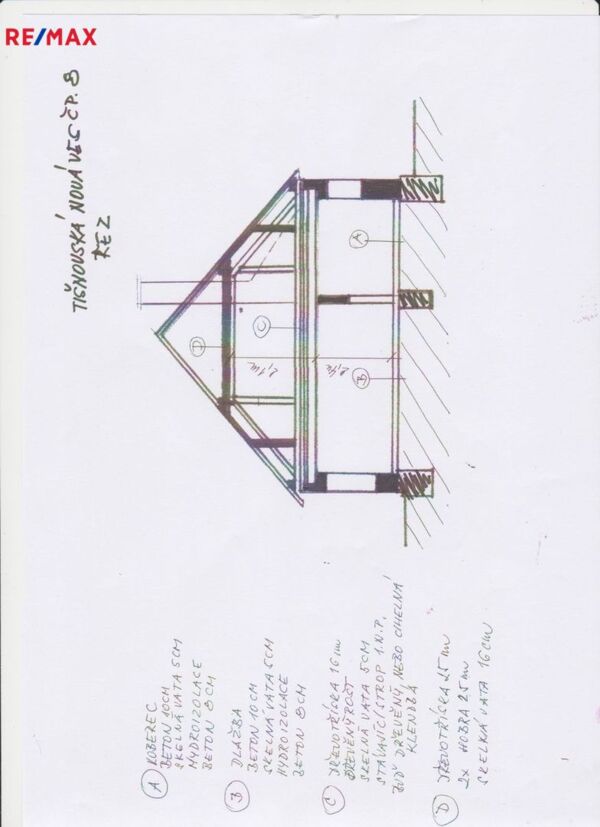 RE/MAX
TIŠNOVSKÁ NOVÁ VES Č.P. 8
ŘEZ
A
B
C
D
2,1m
2,4m
A KOBEREC
BETON 10CM
SKELNÁ VATA 5CM
HYDROIZOLACE
BETON 8CM
B DLAŽBA
BETON 10CM
SKELNÁ VATA 5CM
HYDROIZOLACE
BETON 8CM
C DŘEVOTŘÍSKA 16mm
DŘEVĚNÝ ROŠT
SKELNÁ VATA 5CM
STÁVAJÍCÍ STROP 1.N.P.
BUĎ DŘEVĚNÝ, NEBO CIHELNÁ
KLENBA
D DŘEVOTŘÍSKA 25mm
2x HOBRA 25mm
SKELNÁ VATA 16CM